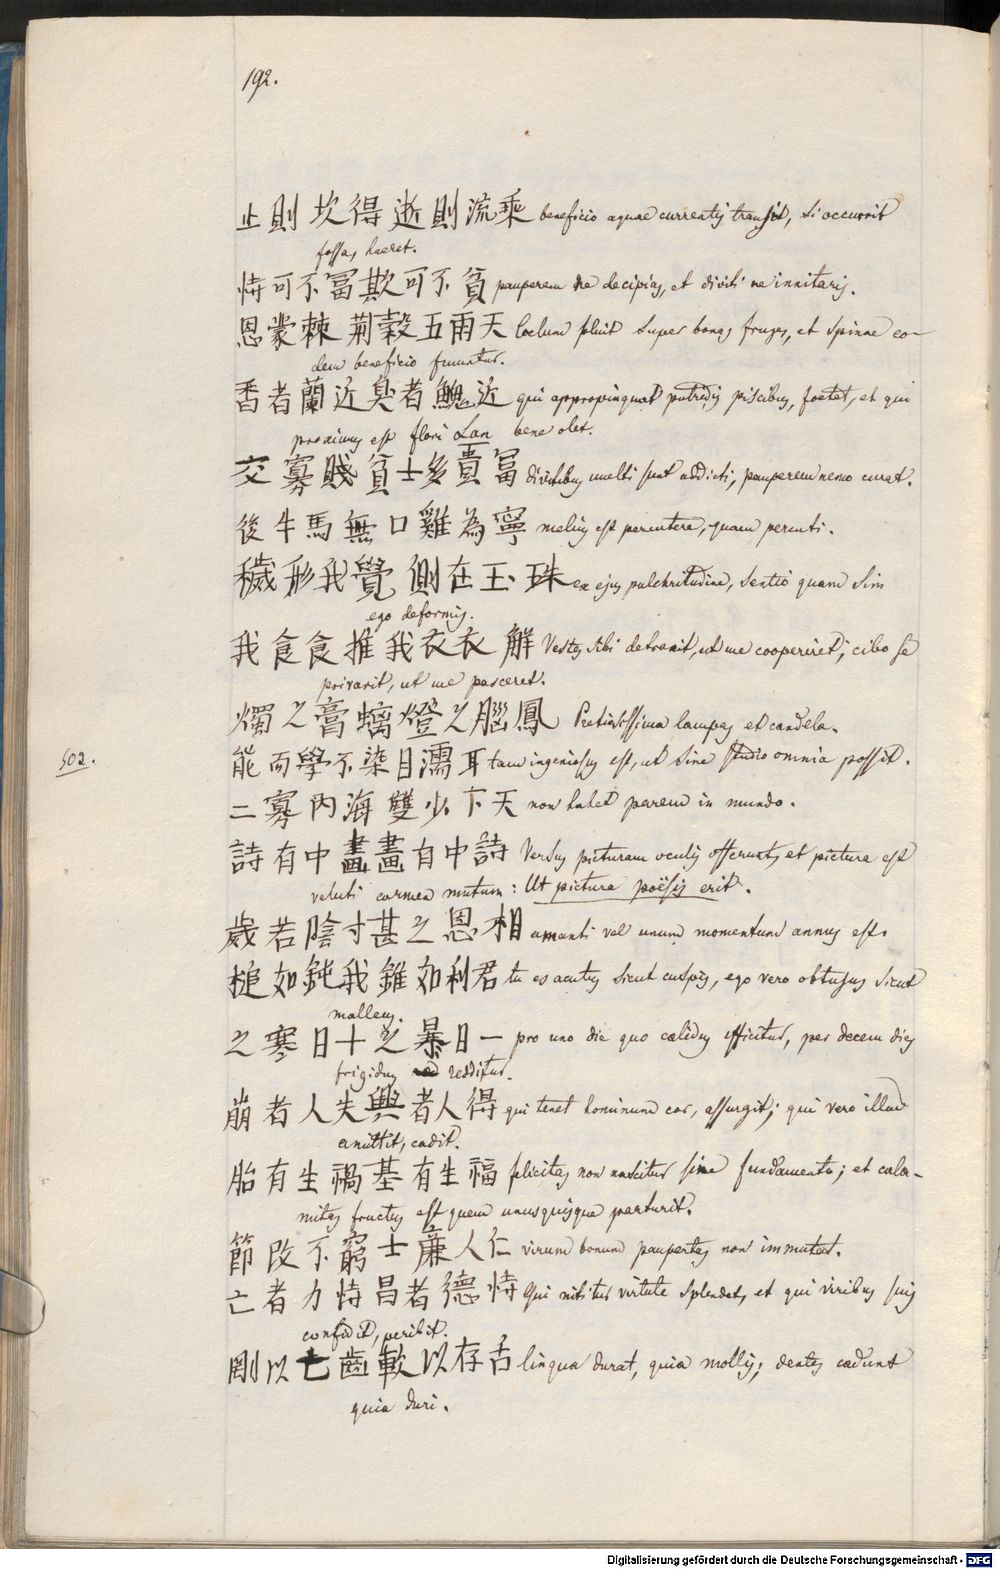 192.
止則坎得逝則流乘 beneficio aquae currentis transit, si occurrit
fossa, haeret.
恃可不冨欺可不貧 pauperem ne decipias, et diviti ne innitaris.
恩蒙棘荆穀五雨天 Coelum pluit super bonas fruges, et spinae eo-
dem beneficio fruuntur.
香者蘭近臭者鮑近 qui appropinquat putredis piscibus, foetet, et qui
proximus est flori Lan bene olet.
交寡賤貧士多貴冨 divitibus multi sunt addicti, pauperem nemo curat.
後牛馬無口雞為寧 melius est percutere, quam percuti.
穢形我覺側在玉珠 ex ejus pulchritudine, sentio quam sim
ego deformis.
我食食推我衣衣解 Vestes sibi detraxit, ut me cooperiret; cibo se
privavit, ut me pasceret.
燭之膏螭燈之腦鳳 Pretiosissima lampas et candela.
502.
能而學不染目濡耳 tam ingeniosus est, ut sine studio omnia possit.
二寡內海雙少下天 non habet parem in mundo.
詩有中畫畫有中詩 Versus picturam oculis offerunt, et pictura est
veluti carmen mutum: Ut pictura poësis erit.
歲若陰寸甚之恩相 amanti vel unum momentum annus est.
槌如鈍我錐如利君 tu es acutus sicut cuspis, ego vero obtusus sicut
malleus.
之寒日十之暴日一 pro uno die quo calidus efficitur, per decem dies
frigidus redditur.
崩者人失興者人得 qui tenet hominum cor, assurgit; qui vero illud
amittit, cadit.
胎有生禍基有生福 felicitas non nascitur sine fundamento; et cala-
mitas fructus est quem unusquisque parturit.
節改不窮士廉人仁 virum bonum paupertas non immutat.
亡者力恃昌者德恃 Qui nititur virtute splendet, et qui viribus suis
confidit, peribit.
剛以亡齒軟以存舌 lingua durat, quia mollis; dentes cadunt
quia duri.
Digitalisierung gefördert durch die Deutsche Forschungsgemeinschaft - DFG